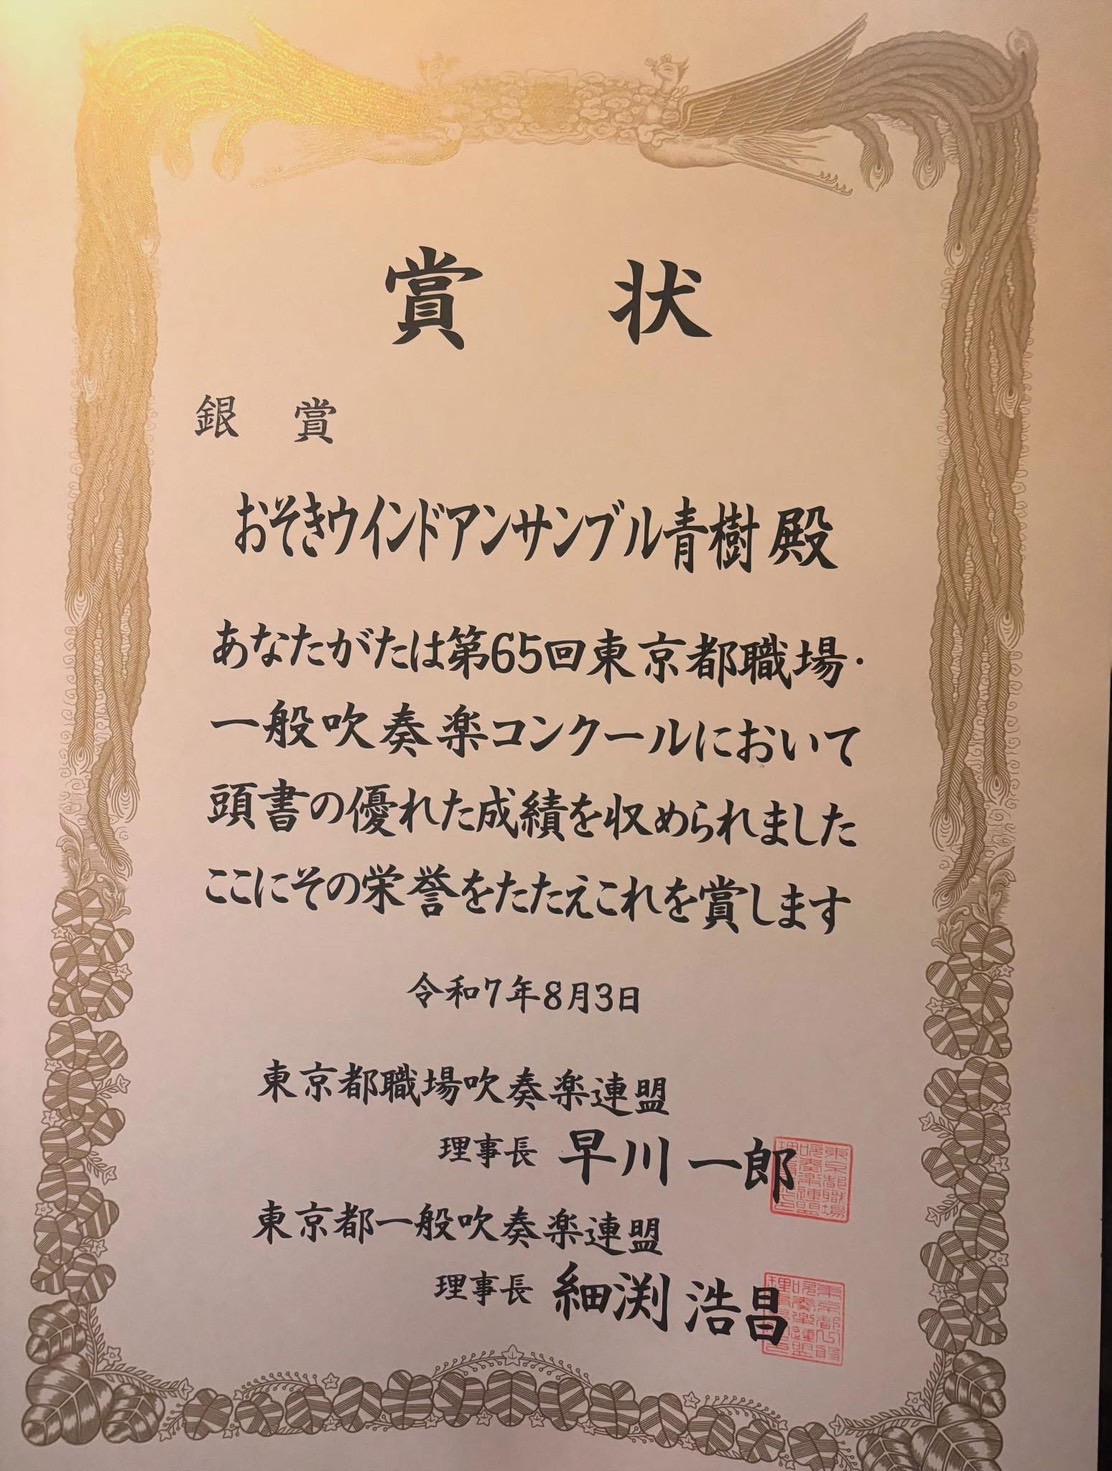 賞状
銀賞
おそきウインドアンサンブル青樹 殿
あなたがたは第65回東京都職場・
一般吹奏楽コンクールにおいて
頭書の優れた成績を収められました
ここにその栄誉をたたえこれを賞します
令和7年8月3日
東京都職場吹奏楽連盟
理事長 早川 一郎
東京都一般吹奏楽連盟
理事長 細渕 浩昌